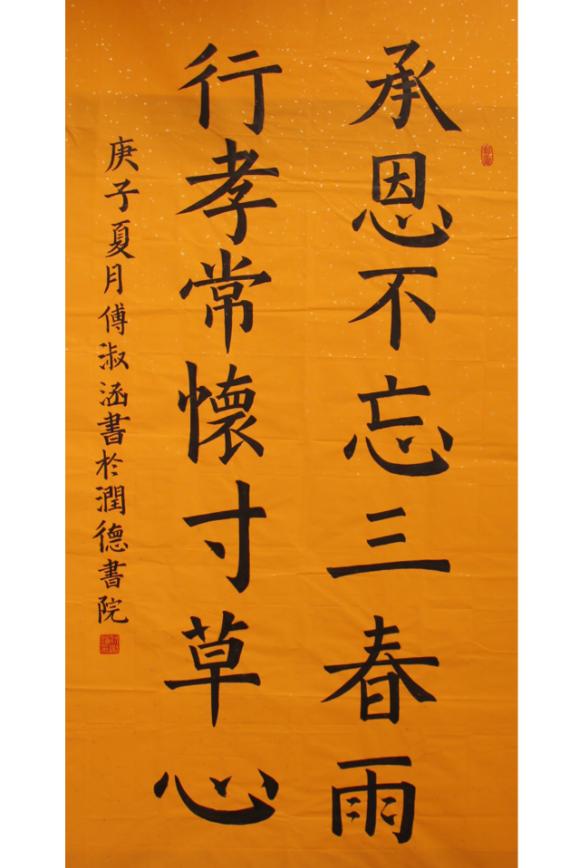 承恩不忘三春雨
行孝常懷寸草心
庚子夏月傅淑涵書於潤德書院